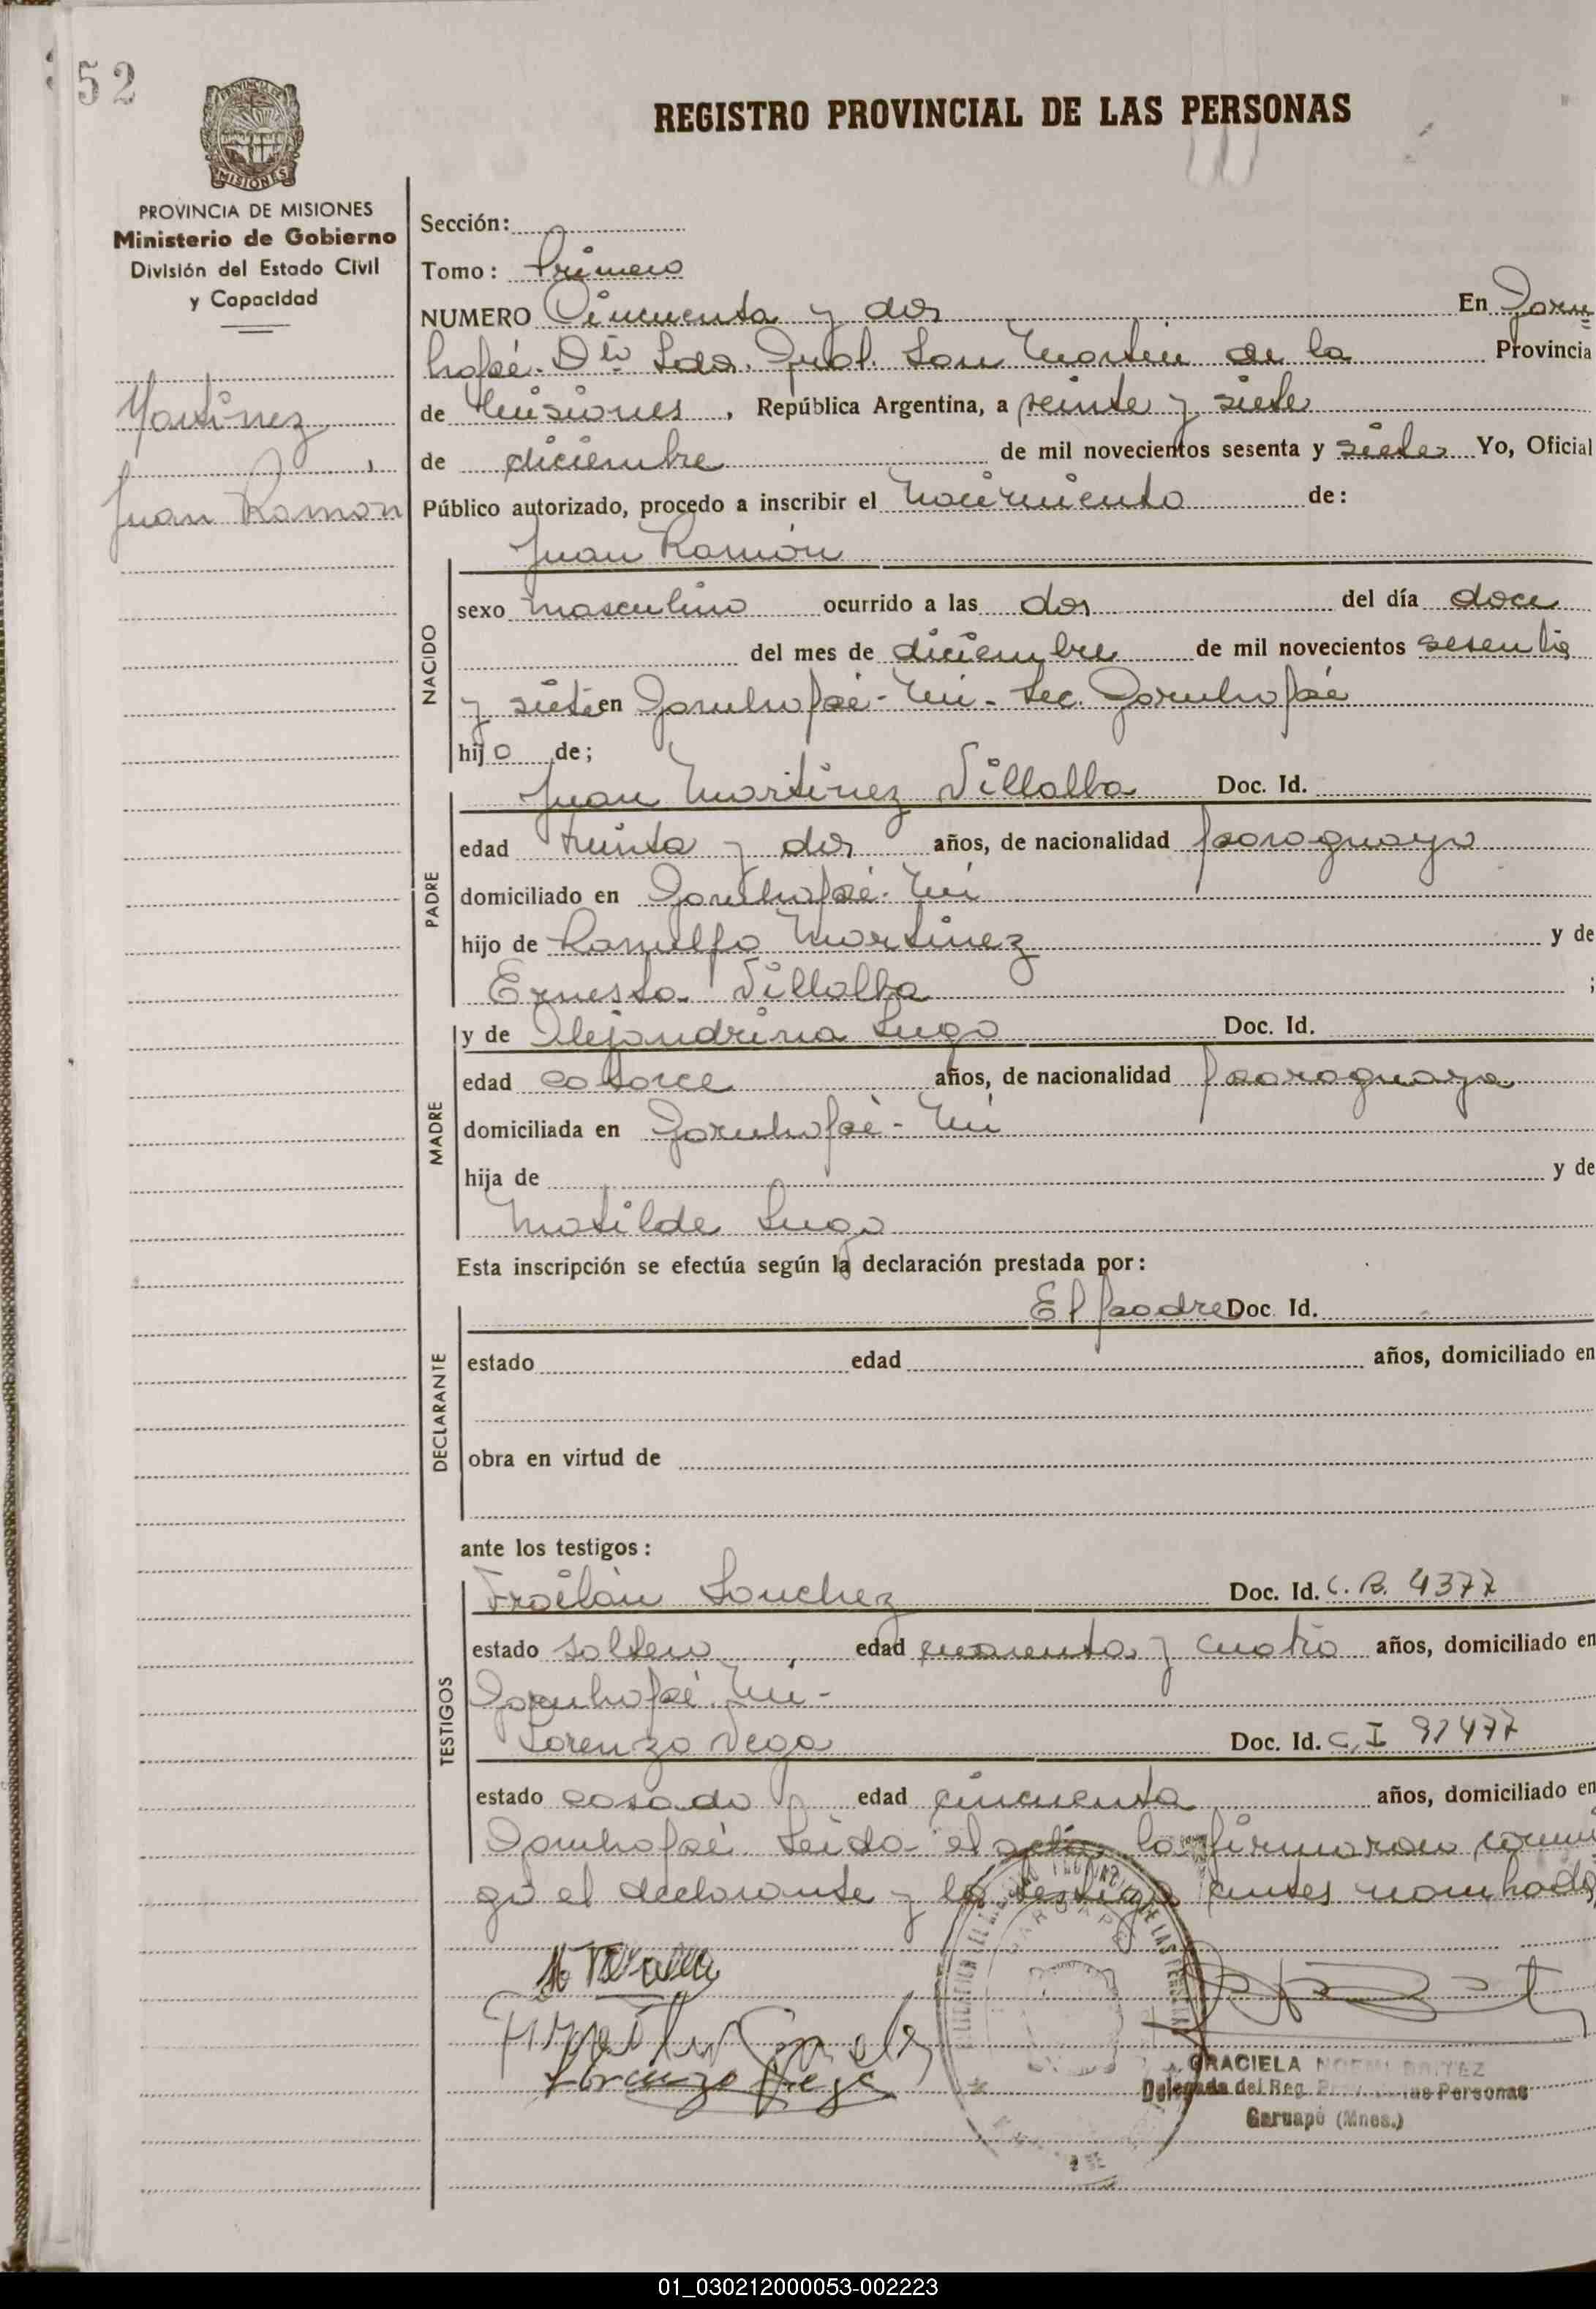 52
REGISTRO PROVINCIAL DE LAS PERSONAS
MISIONES
PROVINCIA DE MISIONES
Ministerio de Gobierno
División del Estado Civil
y Capacidad
Martinez
Juan Ramon
Sección:
Tomo: Primero
NUMERO Cincuenta y dos En Garu=
hapé. Dto Ldor. Gral. San Martin de la Provincia
de Misiones, República Argentina, a veinte y siete
de diciembre de mil novecientos sesenta y siete Yo, Oficial
Público autorizado, procedo a inscribir el nacimiento de:
Juan Ramón
NACIDO
sexo masculino ocurrido a las dos del día doce
del mes de diciembre de mil novecientos sesenta
y siete en Garuhapé-Mi- Sec. Garuhapé
hijo de;
PADRE
Juan Martinez Villalba Doc. Id.
edad treinta y dos años, de nacionalidad paraguayo
domiciliado en Garuhapé-Mi
hijo de Ranulfo Martinez y de
Ernesta Villalba ;
MADRE
y de Alejandrina Lugo Doc. Id.
edad catorce años, de nacionalidad paraguaya
domiciliada en Garuhapé-Mi
hija de y de
Matilde Lugo
Esta inscripción se efectúa según la declaración prestada por:
DECLARANTE
El padre Doc. Id.
estado edad años, domiciliado en
obra en virtud de
ante los testigos:
TESTIGOS
Froilán Sanchez Doc. Id. C. B. 4377
estado soltero edad cuarenta y cuatro años, domiciliado en
Garuhapé Mi-
Lorenzo Vega Doc. Id. C.I 91477
estado casado edad cincuenta años, domiciliado en
Garuhapé. Leida el acta la firmaron conmi
go el declarante y los testigos antes nombrados
Lorenzo Vega
GRACIELA NOEMI
Delegada del Reg. Prov. de las Personas
Garuapé (Mnes.)
01_030212000053-002223